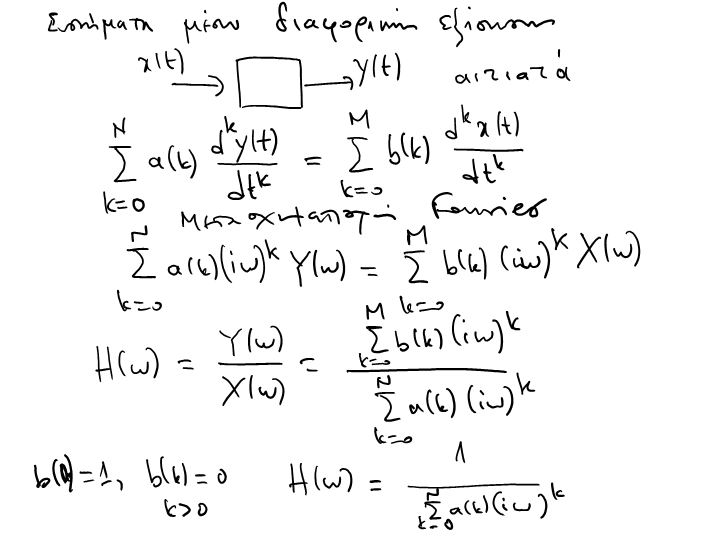 Συστήματα μέσω διαφορικών εξίσωσης
x(t) → □ → y(t) αιτιατά
\sum_{k=0}^{N} a(k) \frac{d^k y(t)}{dt^k} = \sum_{k=0}^{M} b(k) \frac{d^k x(t)}{dt^k}
Μετασχηματισμοί Fourier
\sum_{k=0}^{N} a(k)(iω)^k Y(ω) = \sum_{k=0}^{M} b(k)(iω)^k X(ω)
H(ω) = \frac{Y(ω)}{X(ω)} = \frac{\sum_{k=0}^{M} b(k)(iω)^k}{\sum_{k=0}^{N} a(k)(iω)^k}
b(0)=1, b(k)=0 k>0 H(ω) = \frac{1}{\sum_{k=0}^{N} a(k)(iω)^k}